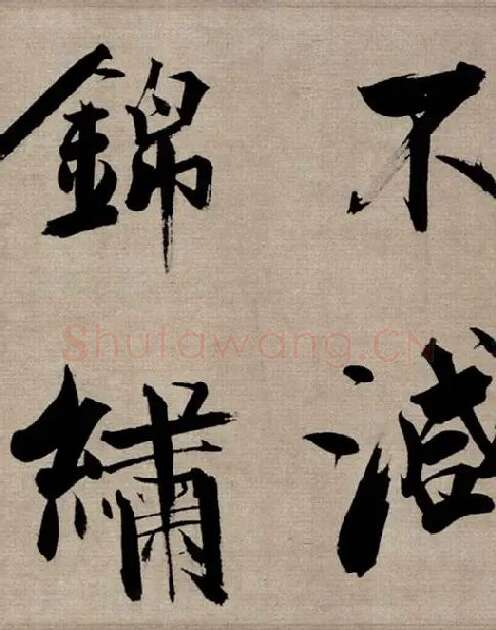 不减
錦繡
Shufawang.CN